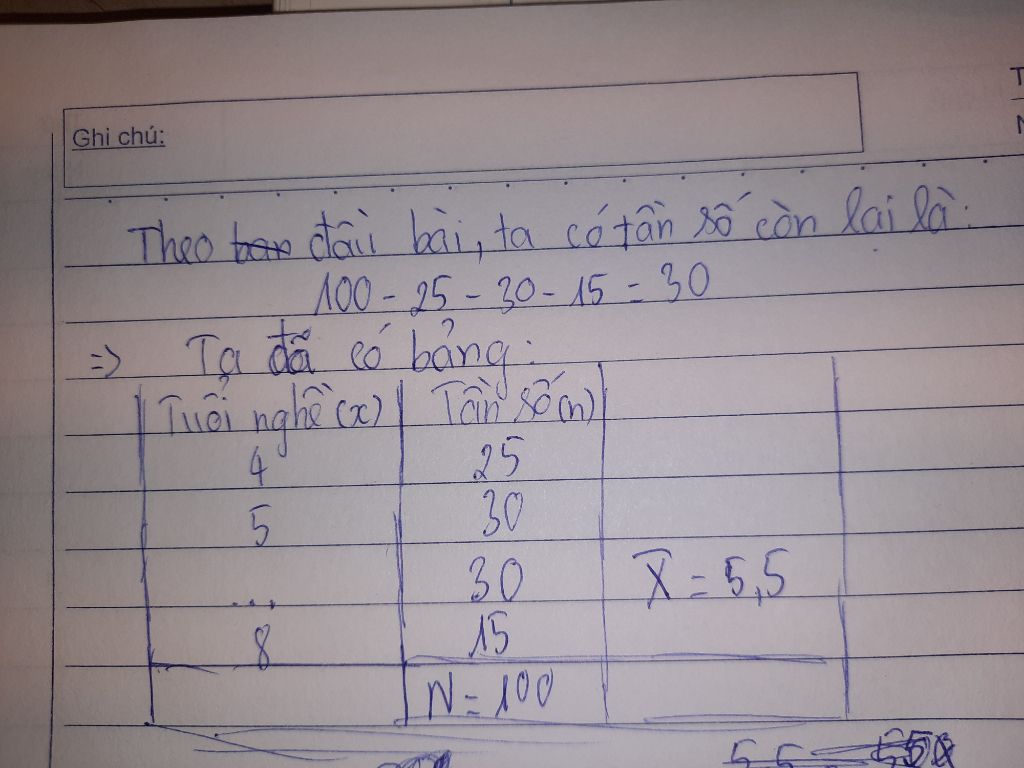 Ghi chú:
Theo đầu bài, ta có tần số còn lại là:
100 - 25 - 30 - 15 = 30
=> Ta đã có bảng:
Tuổi nghề (x) Tần số (n)
4 25
5 30
... 30 X̄ = 5,5
8 15
N = 100